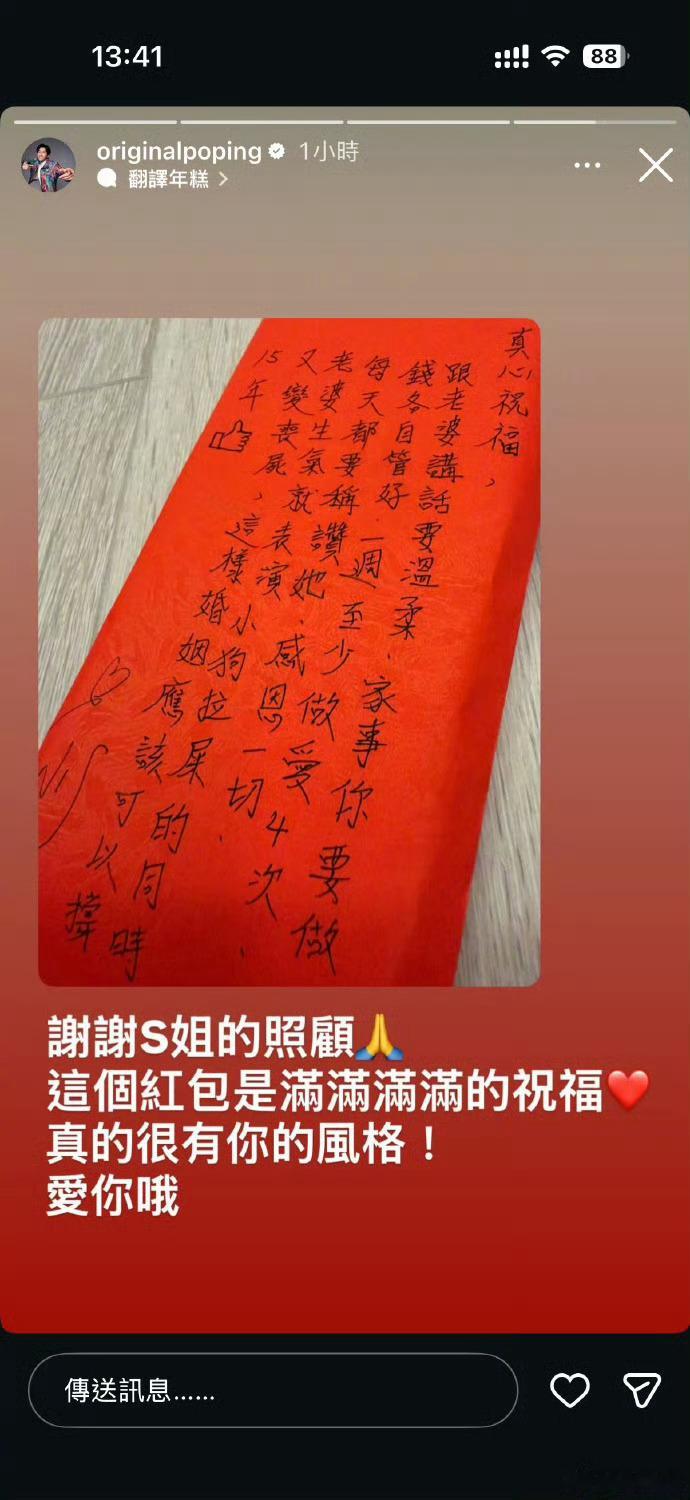 13:41
88
originalpoping 1小時
翻譯年糕
真心祝福，
跟老婆講話要溫柔、家事你要做
錢各自管好、一週至少做愛4次、
每天都要稱讚她、感恩一切、
老婆生氣就表演小狗拉屎的同時
又變喪屍，這樣婚姻應該可以撐
15年
謝謝S姐的照顧🙏
這個紅包是滿滿滿滿的祝福❤️
真的很有你的風格！
愛你哦
傳送訊息……